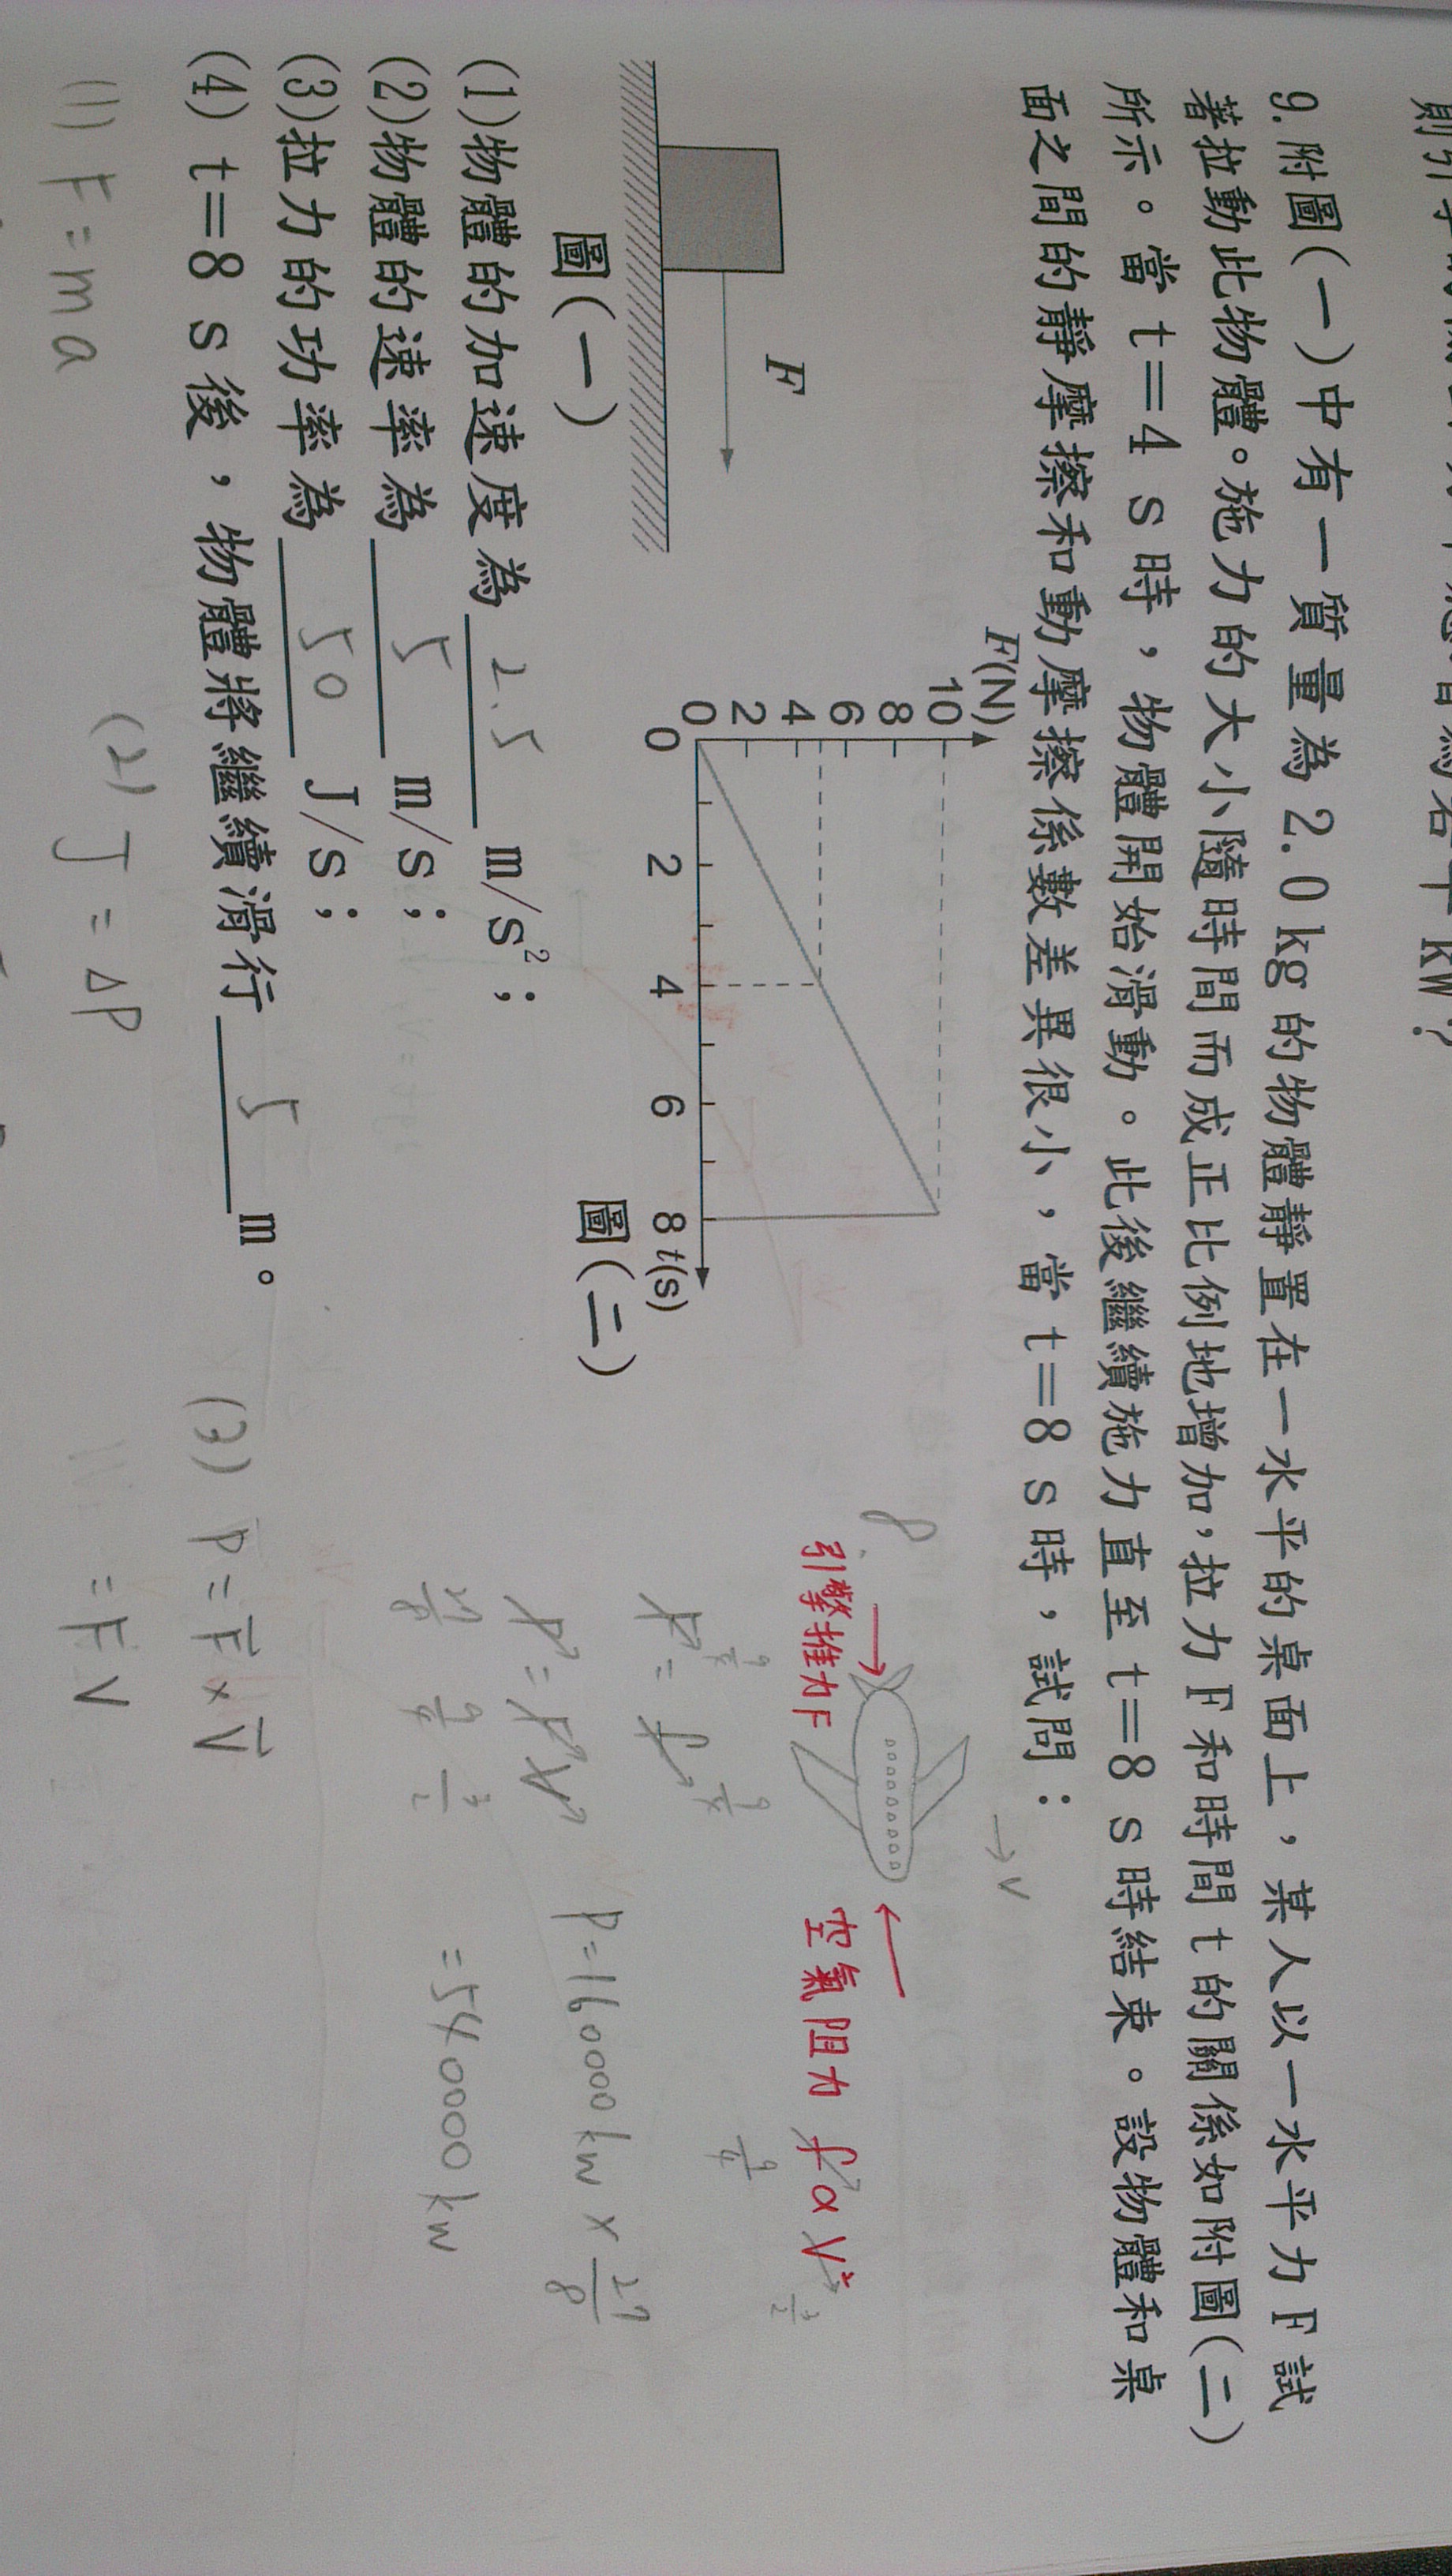 9.附圖(一)中有一質量為 2.0 kg 的物體靜置在一水平的桌面上，某人以一水平力 F 試
著拉動此物體。施力的大小隨時間而成正比例地增加，拉力 F 和時間 t 的關係如附圖(二)
所示。當 t=4 s 時，物體開始滑動。此後繼續施力直至 t=8 s 時結束。設物體和桌
面之間的靜摩擦和動摩擦係數差異很小，當 t=8 s 時，試問：
F
圖(一)
F(N)
10
8
6
4
2
0
0 2 4 6 8 t(s)
圖(二)
→V
引擎推力F
空氣阻力 f α V²
P=160000 kw × 27/8
=540000 kw
(1)物體的加速度為 2.5 m/s²；
(2)物體的速率為 5 m/s；
(3)拉力的功率為 50 J/s；
(4) t=8 s 後，物體將繼續滑行 5 m。
(1) F=ma
(2) J = ΔP
(3) P = F × V
= FV